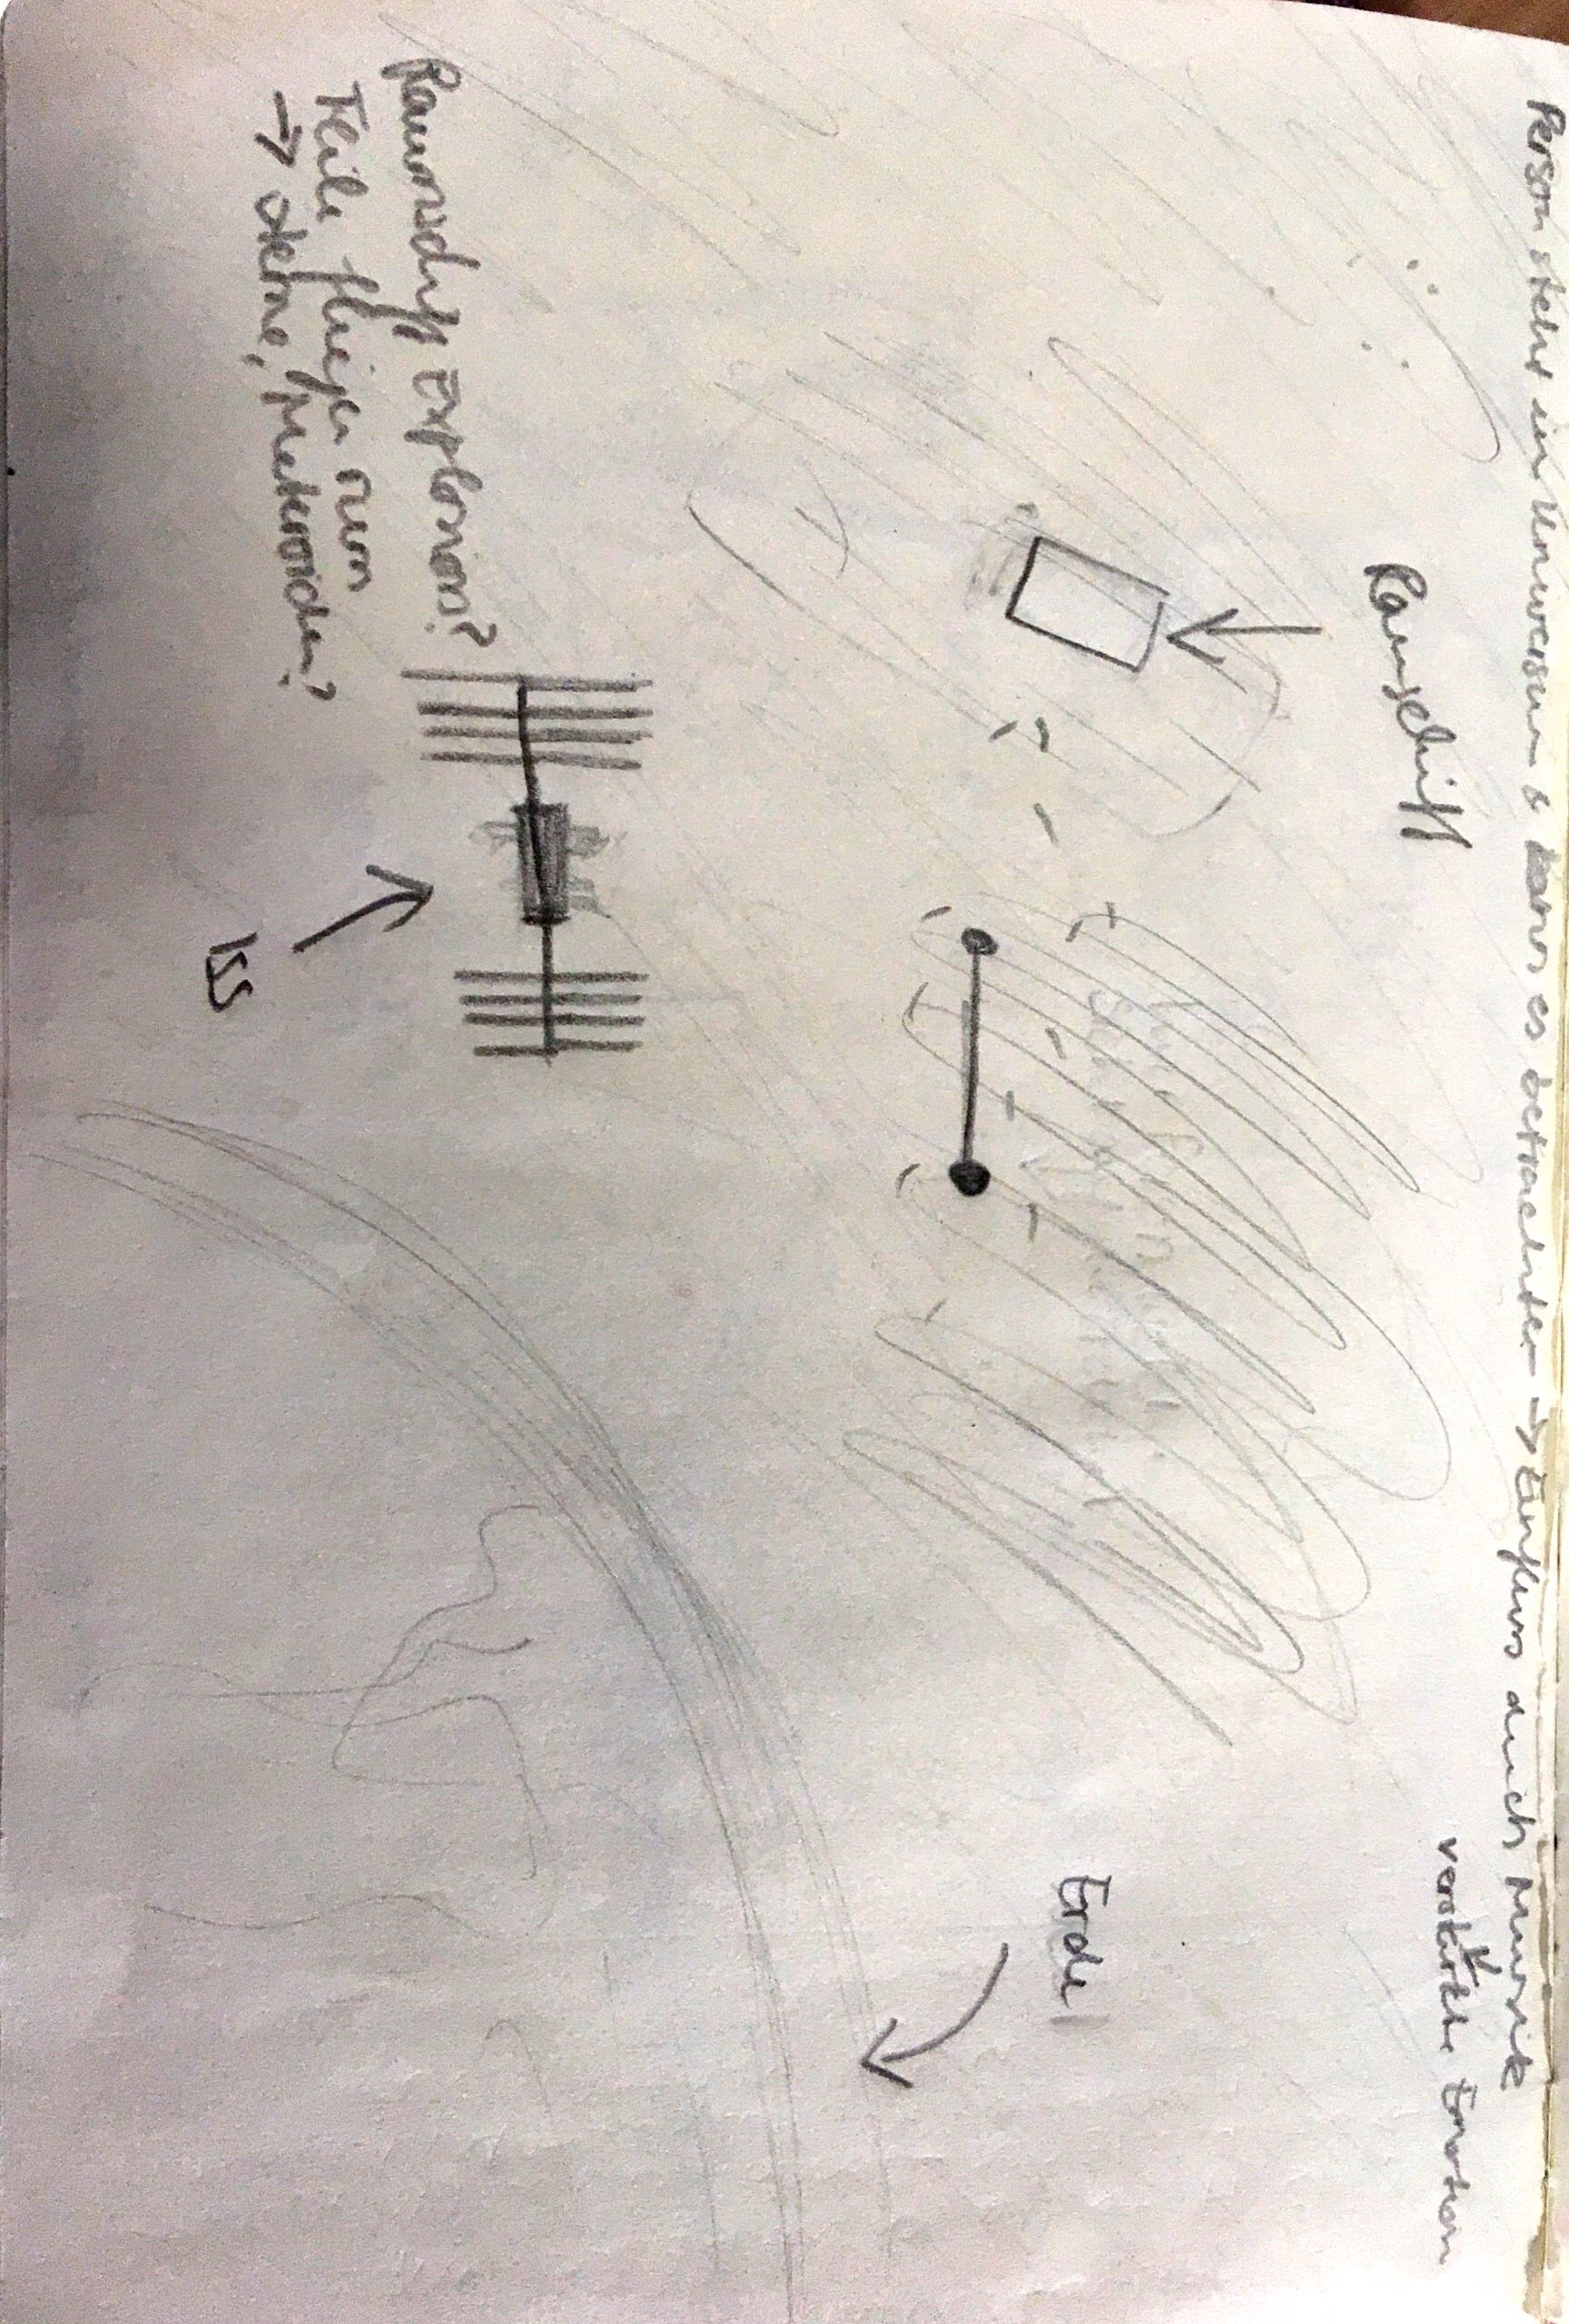 Person steht in Universum & kann es betrachten → Einfluss durch Musik
verstärkte Emotion
Raumschiff
Erde
Raumschiff Explosion?
Teile fliegen rum
→ Sterne, Meteroiden?
ISS